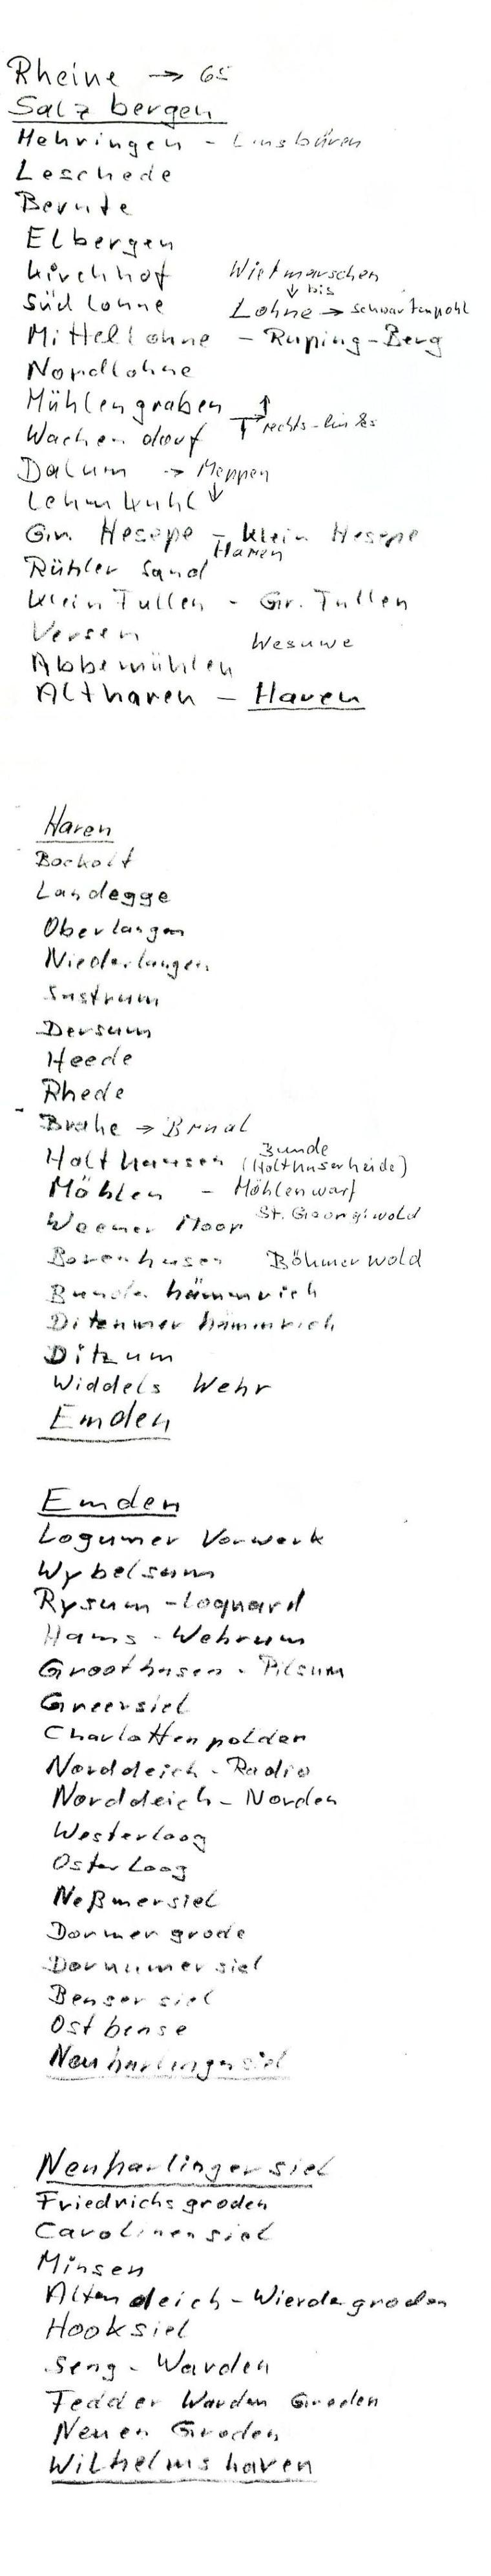 Rheine → 65
Salzbergen
Mehringen - Emsbüren
Leschede
Bernte
Elbergen
Kirchhof Wietmarschen
↓ bis
Südlohne Lohne → Schwartenpohl
Mittellohne - Rüping-Berg
Nordlohne
Mühlengraben ↑
Wachendorf rechts-links
Dalum → Meppen
Lehmkuhl ↓
Gr. Hesepe - Klein Hesepe
Haren
Rühler Sand
Klein Tullen - Gr. Tullen
Versen Wesuwe
Abbemühlen
Altharen - Haren
Haren
Bockolt
Landegge
Oberlangen
Niederlangen
Sustrum
Dersum
Heede
Rhede
Brahe → Brual
Bunde
Holthausen (Holthuserheide)
Möhlen - Möhlenwarf
Weener Moor St. Georgiwold
Bovenhusen Böhmerwold
Bunderhämmrich
Ditzumer hämmrich
Ditzum
Widdels Wehr
Emden
Emden
Logumer Vorwerk
Wybelsum
Rysum - Loquard
Hams - Wehrum
Groothusen - Pilsum
Greersiel
Charlottenpolder
Norddeich - Radio
Norddeich - Norden
Westerloog
Osterloog
Neßmersiel
Dornumer grode
Dornumersiel
Bensersiel
Ostbense
Neuharlingersiel
Neuharlingersiel
Friedrichsgroden
Carolinensiel
Minsen
Altendeich - Wierdegroden
Hooksiel
Seng - Warden
Fedder Warden Groden
Neuen Groden
Wilhelmshaven